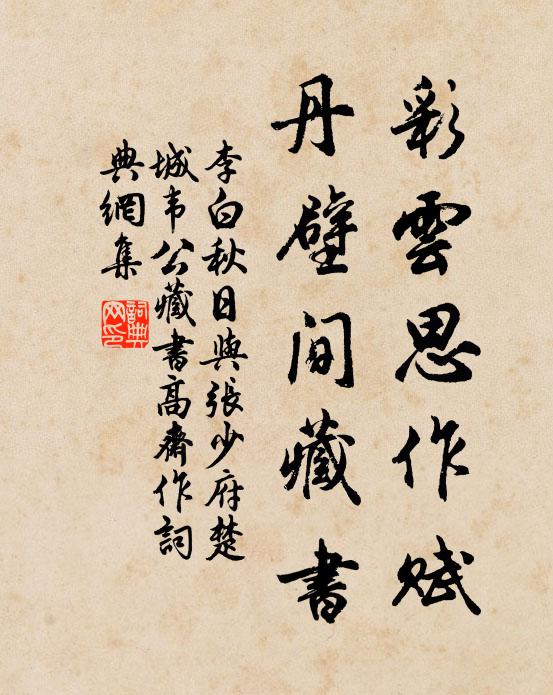 彩雲思作賦
丹壁間藏書
李白秋日與張少府楚
城韦公藏書高齋作詞
典網集
詞典
网印